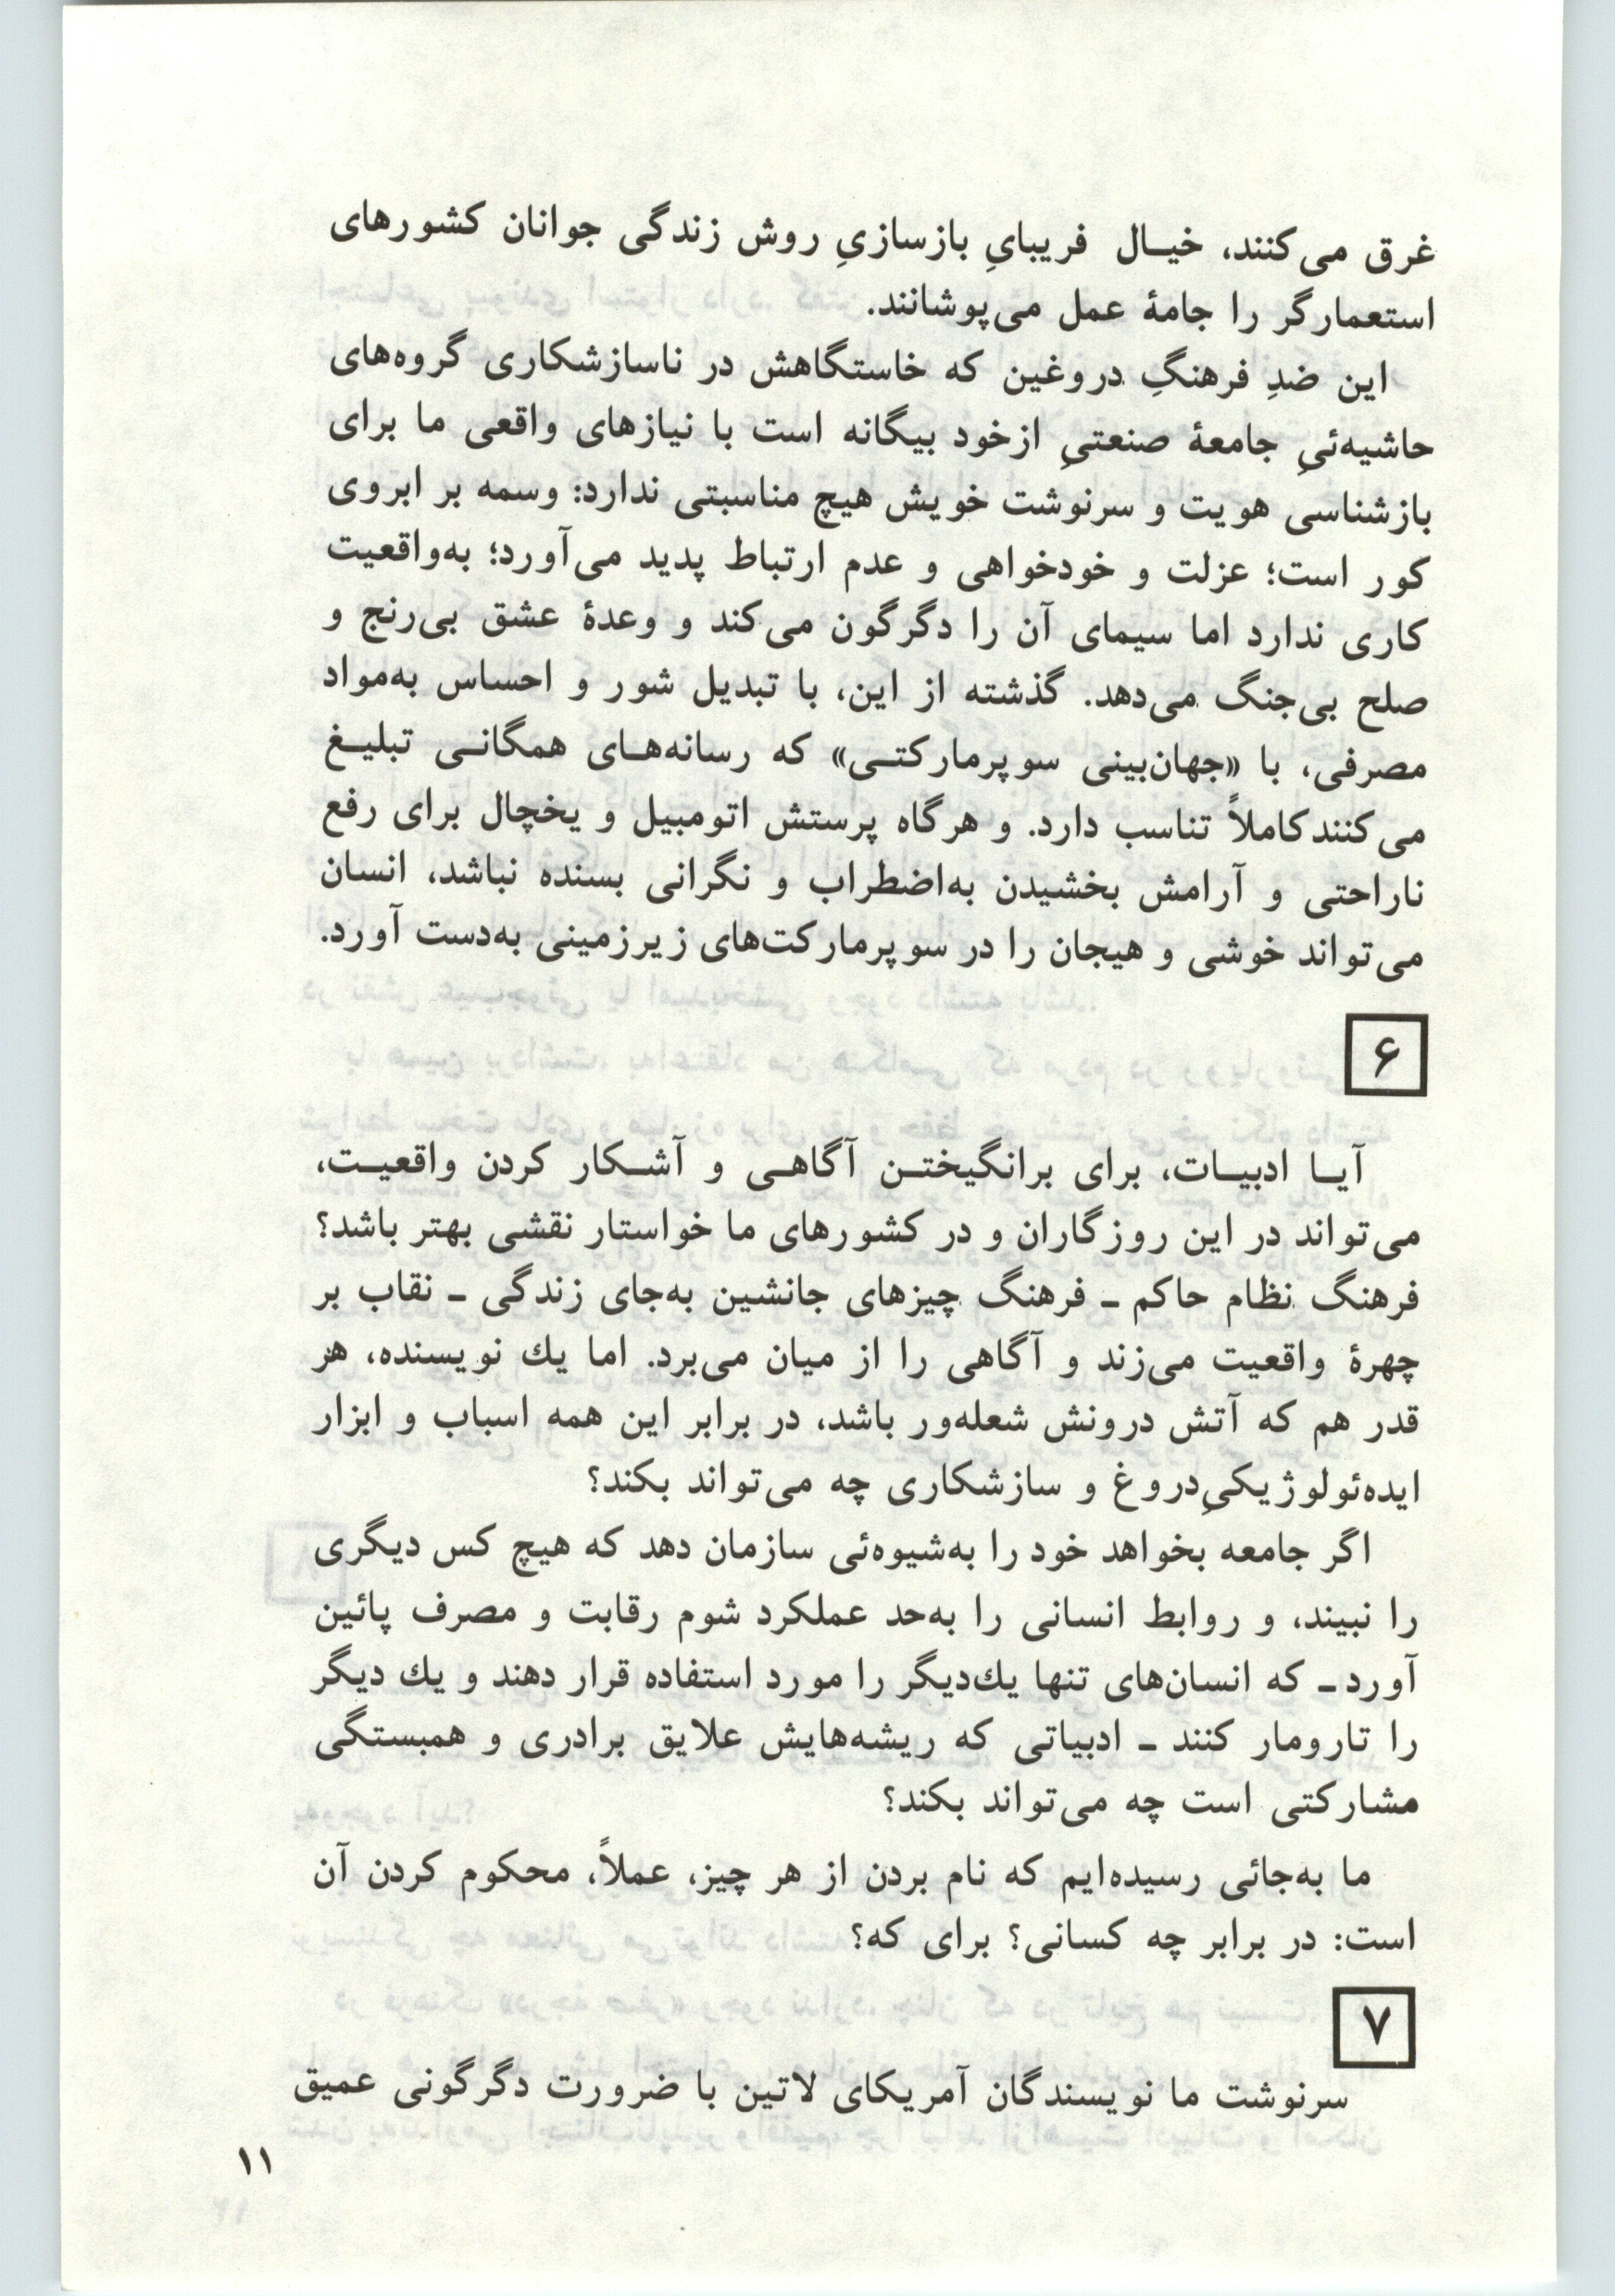 غرق می‌کنند، خیـال فریبایِ بازسازیِ روش زندگی جوانان کشورهای
استعمارگر را جامهٔ عمل می‌پوشانند.
این ضدِ فرهنگِ دروغین که خاستگاهش در ناسازشکاری گروه‌های
حاشیه‌ئیِ جامعهٔ صنعتیِ ازخود بیگانه است با نیازهای واقعی ما برای
بازشناسی هویت و سرنوشت خویش هیچ مناسبتی ندارد: وسمه بر ابروی
کور است؛ عزلت و خودخواهی و عدم ارتباط پدید می‌آورد؛ به‌واقعیت
کاری ندارد اما سیمای آن را دگرگون می‌کند و وعدهٔ عشق بی‌رنج و
صلح بی‌جنگ می‌دهد. گذشته از این، با تبدیل شور و احساس به‌مواد
مصرفی، با «جهان‌بینی سوپرمارکتـی» که رسانه‌هـای همگانـی تبلیـغ
می‌کنند کاملاً تناسب دارد. و هرگاه پرستش اتومبیل و یخچال برای رفع
ناراحتی و آرامش بخشیدن به‌اضطراب و نگرانی بسنده نباشد، انسان
می‌تواند خوشی و هیجان را در سوپرمارکت‌های زیرزمینی به‌دست آورد.
۶
آیـا ادبیـات، برای برانگیختـن آگاهـی و آشـکار کردن واقعیـت،
می‌تواند در این روزگاران و در کشورهای ما خواستار نقشی بهتر باشد؟
فرهنگ نظام حاکم ـ فرهنگ چیزهای جانشین به‌جای زندگی ـ نقاب بر
چهرهٔ واقعیت می‌زند و آگاهی را از میان می‌برد. اما یك نویسنده، هر
قدر هم که آتش درونش شعله‌ور باشد، در برابر این همه اسباب و ابزار
ایده‌ئولوژیکیِ دروغ و سازشکاری چه می‌تواند بکند؟
اگر جامعه بخواهد خود را به‌شیوه‌ئی سازمان دهد که هیچ کس دیگری
را نبیند، و روابط انسانی را به‌حد عملکرد شوم رقابت و مصرف پائین
آورد ـ که انسان‌های تنها یك‌دیگر را مورد استفاده قرار دهند و یك دیگر
را تارومار کنند ـ ادبیاتی که ریشه‌هایش علایق برادری و همبستگی
مشارکتی است چه می‌تواند بکند؟
ما به‌جائی رسیده‌ایم که نام بردن از هر چیز، عملاً، محکوم کردن آن
است: در برابر چه کسانی؟ برای که؟
۷
سرنوشت ما نویسندگان آمریکای لاتین با ضرورت دگرگونی عمیق
۱۱